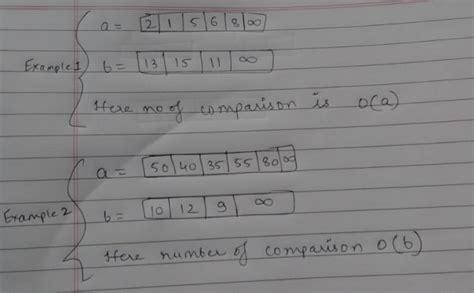 Example 1
a = 2 1 5 6 8 ∞
b = 13 15 11 ∞
Here no of comparison is O(a)
Example 2
a = 50 40 35 55 80 ∞
b = 10 12 9 ∞
Here number of comparison O(b)